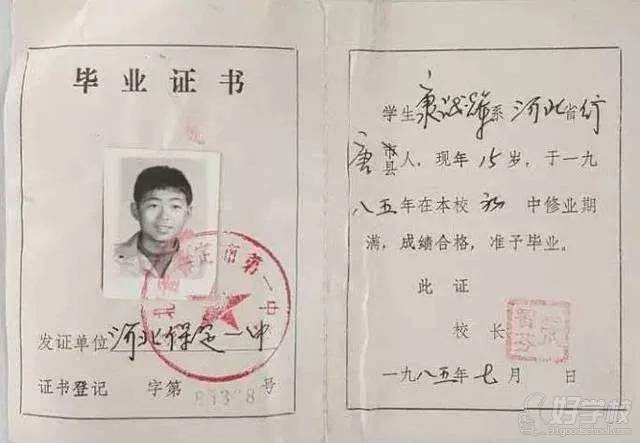 毕业证书
河北保定市第一中
发证单位 河北保定一中
证书登记 字第 号
学生 康 系 河北省行
唐 市县 人，现年 15 岁，于一九
八五年在本校 初 中修业期
满，成绩合格，准予毕业。
此 证
校 长
一九八五年七月 日
好学校